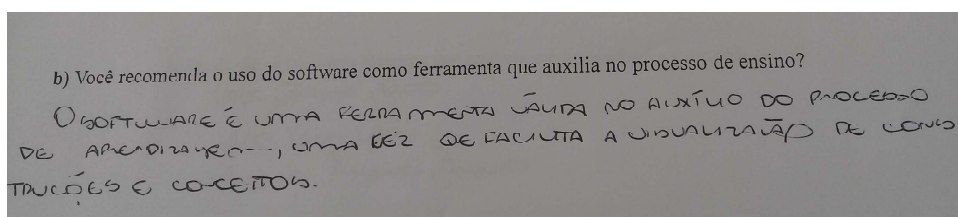 b) Você recomenda o uso do software como ferramenta que auxilia no processo de ensino?
O SOFTWARE É UMA FERRAMENTA VÁLIDA NO AUXÍLIO DO PROCESSO
DE APRENDIZAGEM, UMA VEZ QE FACILITA A VISUALIZAÇÃO DE CONS
TRUÇÕES E CONCEITOS.